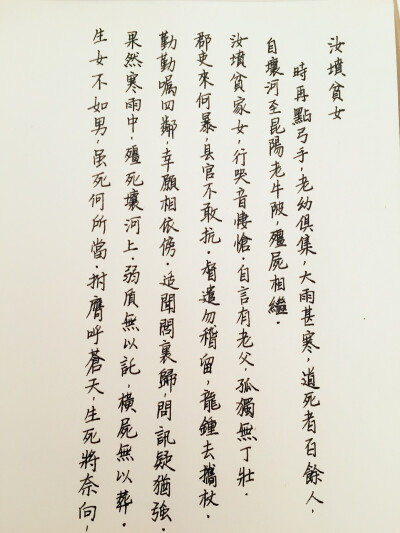 汝墳貧女
時再點弓手，老幼俱集，大雨甚寒，道死者百餘人，
自壤河至昆陽老牛陂，殭屍相繼．
汝墳貧家女，行哭音悽愴．自言有老父，孤獨無丁壯．
郡吏來何暴，县官不敢抗．督遣勿稽留，龍鍾去攜杖．
勤勤嘱四鄰，幸願相依傍．适聞閭裏歸，問訊疑猶強．
果然寒雨中，殭死壤河上．弱质無以託，橫屍無以葬．
生女不如男，虽死何所當．拊膺呼蒼天，生死將奈向，